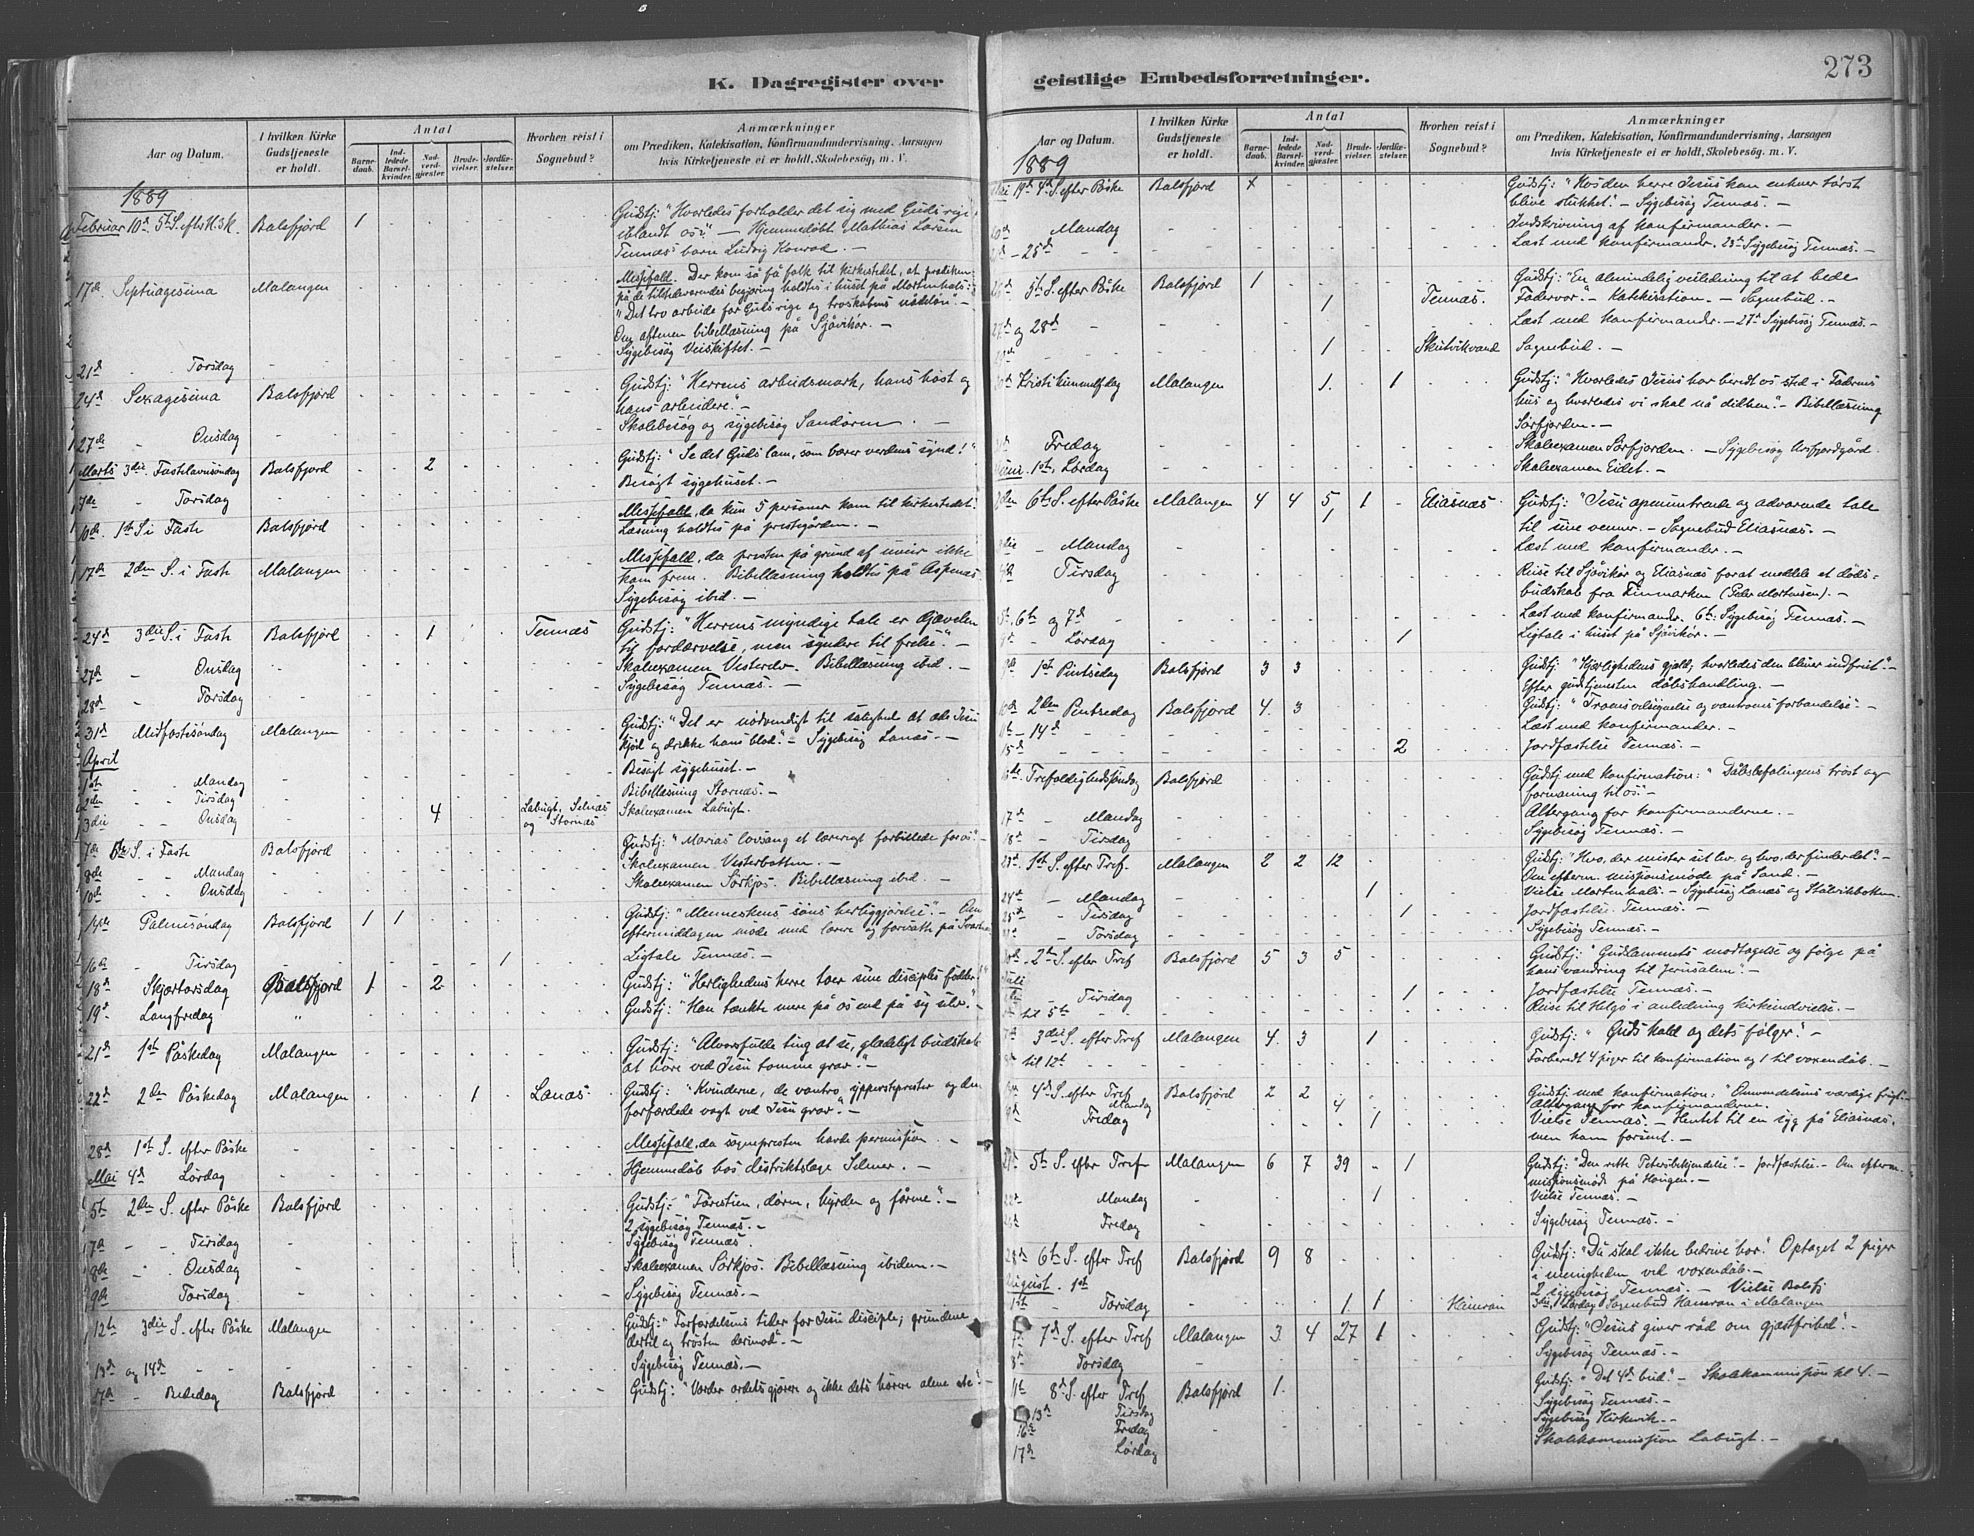 K. Dagregister over
Aar og Datum.
I hvilken Kirke Gudstjeneste er holdt.
Antal
Barnedaab.
Indledede Barselkvinder.
Nadverdgjæster.
Brudevielser.
Jordfæstelser.
Hvorhen reist i Sognebud?
Anmærkninger
om Prædiken, Katekisation, Konfirmandundervisning, Aarsagen
hvis Kirketjeneste ei er holdt, Skolebesøg, m. V.
1889
Februar 10de 5te S. eft. H.3.K. Balsfjord 1 Gudstj: "Hvorledes forholder det sig med Guds rige
iblandt os?" — Hjemmedøbt Mathias Larsen
Tennæs barn Ludvig Konrad. —
17de Septuagesima Malangen Messefald. Der kom så få folk til kirkestedet, at prædiken
på de tilstedeværendes begjæring holdtes i huset på Mortenhals:
"Det tro arbeide for Guds rige og troskabens nådeløn". —
Om aftenen bibellæsning på Sjåvikør. —
Sygebesøg Veiskiftet. —
21de Torsdag
24de Sexagesima Balsfjord Gudstj: "Herrens arbeidsmark, hans høst og
hans arbeidere." —
27de Onsdag Skolebesøg og sygebesøg Sandøren. —
Marts 3die Fastelavnsøndag Balsfjord 2 Gudstj: "Se det Guds lam, som bærer verdens synd!"
7de Torsdag Besøgt sygehuset. —
10de 1ste S. i Faste Balsfjord Messefald, da kun 5 personer kom til kirkestedet.
Læsning holdtes på prestegården. —
17de 2den S. i Faste Malangen Messefald, da presten på grund af uveir ikke
kom frem. Bibellæsning holdtes på Aspenæs.
Sygebesøg ibid. —
24de 3die S. i Faste Balsfjord 1 Tennæs Gudstj: "Herrens myndige tale er djævelen
til fordærvelse, men syndere til frelse." —
27de Onsdag Skoleexamen Vesterelv. Bibellæsning ibid. —
28de Torsdag Sygebesøg Tennæs. —
31te Midfastesøndag Malangen Gudstj: "Det er nødvendigt til salighed at æde Jesu
kjød og drikke hans blod." — Sygebesøg Lanæs. —
April
1ste Mandag Besøgt sygehuset. —
2den Tirsdag Bibellæsning Stornæs. —
3die Onsdag 4 Labugt, Selnæs og Stornæs Skoleexamen Labugt.
7de 5te S. i Faste Balsfjord Gudstj: "Marias lovsang et lærerigt forbillede for os". —
8de Mandag Skoleexamen Vesterbotten. —
10de Onsdag Skoleexamen Sørkjos. Bibellæsning ibid. —
14de Palmesøndag Balsfjord 1 1 Gudstj: "Menneskens søns herliggjørelse". — Om
eftermiddagen møde med lærere og foresatte på Svartnes
16de Tirsdag 1 Ligtale Tennæs. —
18de Skjærtorsdag Balsfjord 1 2 Gudstj: "Herlighedens herre toer sine disciples fødder!"
19de Langfredag " Gudstj: "Han tænkte mere på os end på sig selv." —
21de 1ste Påskedag Malangen Gudstj: "Alvorsfulle ting at se, gladeligt budskab
at høre ved Jesu tomme grav." —
22de 2den Påskedag Malangen 1 Lanæs. Gudstj: "Kvinderne, de vantro ypperstepræster og den
forfærdede vagt ved Jesu grav. —
28de 1ste S. efter Påske Messefald, da sognepresten havde permission. —
Mai 4de Lørdag Hjemmedåb hos distriktslæge Selmer. —
5te 2den S. efter Påske Balsfjord Gudstj: "Førstien, døren, hyrden og fårene". —
2 sygebesøg Tennæs. —
7de Tirsdag Sygebesøg Tennæs.
8de Onsdag Skoleexamen Sørkjos. Bibellæsning ibidem. —
9de Torsdag Sygebesøg Tennæs. —
12te 3die S. efter Påske Malangen Gudstj: "Forfølgelsens tider for Jesu disciple; grundene
dertil og trøsten derimod". —
13de og 14de Sygebesøg Tennæs. —
17de Bededag Balsfjord Gudstj: "Vorder ordets gjørere og ikke dets hørere alene etc." —
geistlige Embedsforretninger.
273
Aar og Datum.
I hvilken Kirke Gudstjeneste er holdt.
Antal
Barnedaab.
Indledede Barselkvinder.
Nadverdgjæster.
Brudevielser.
Jordfæstelser.
Hvorhen reist i Sognebud?
Anmærkninger
om Prædiken, Katekisation, Konfirmandundervisning, Aarsagen
hvis Kirketjeneste ei er holdt, Skolebesøg, m. V.
1889
Mai 19de 4de S. efter Påske Balsfjord x Gudstj: "Hos den herre Jesus kan enhver tørst
blive slukket." — Sygebesøg Tennæs. —
20de Mandag Indskrivning af konfirmander. —
— 25de Læst med konfirmander. 23de Sygebesøg Tennæs. —
26de 5te S. efter Påske Balsfjord 1 Gudstj: "En almindelig veiledning til at bede
1 Tennæs. Fadervor". — Katekisation. — Sognebud. —
27de og 28de Læst med konfirmander. — 27de Sygebesøg Tennæs. —
1 Skutvikvand Sognebud. —
30te Kristi himmelfdag Malangen 1 1 Gudstj: "Hvorledes Jesus har beredt os sted i Faderens
hus og hvorledes vi skal nå didhen". — Bibellæsning
Sørfjorden. —
Fredag Skoleexamen Sørfjorden. — Sygebesøg Aursfjordgård.
Juni 1ste Lørdag Skoleexamen Eidet. —
2den 6te S. efter Påske Malangen 4 4 5 1 Eliasnæs Gudstj: "Jesu opmuntrende og advarende tale
1 til sine venner. — Sognebud Eliasnæs. —
3die Mandag Læst med konfirmander. —
4de Tirsdag Reise til Sjåvikør og Eliasnæs for at meddele et dødsbudskab
fra Finmarken (Peder Mortensen). —
5te, 6te og 7de Læst med konfirmander. 6te Sygebesøg Tennæs. —
Lørdag 1 Ligtale i huset på Sjåvikør. —
9de 1ste Pintsedag Balsfjord 3 3 Gudstj: "Kjærlighedens gjæld; hvorledes den bliver indfriet". —
Efter gudstjenesten dåbshandling. —
10de 2den Pintsedag Balsfjord 4 3 Gudstj: "Troens velsignelse og vantroens forbandelse". —
— 14de Læst med konfirmander. —
15de 2 Jordfæstelse Tennæs. —
16de Trefoldighedssøndag Balsfjord Gudstj. med konfirmation: "Dåbsbefalingens trøst og
formaning til os". —
17de Mandag Altergang for konfirmanderne. —
18de Tirsdag Sygebesøg Tennæs. —
23de 1ste S. efter Tref. Malangen 2 2 12 Gudstj: "Hvo, der mister sit liv, og hvo, der finder det". —
Om efterm. missionsmøde på Sand. —
24de Mandag 1 Vielse Mortenhals. — Sygebesøg Lanæs og Skutvikbotten.
25de Tirsdag 1 Jordfæstelse Tennæs. —
Torsdag Sygebesøg Tennæs. —
30te 2den S. efter Tref. Balsfjord 5 3 5 Gudstj: "Gudslammets modtagelse og følge på
hans vandring til Jerusalem". —
Juli
Tirsdag 1 Jordfæstelse Tennæs. —
til 5te Reise til Helgø i anledning kirkeindvielse. —
7de 3die S. efter Tref Malangen 4 3 1 Gudstj: "Guds kald og dets følger". —
8de til 12te Forberedt 4 piger til konfirmation og 1 til voxendåb. —
4de S. efter Tref Balsfjord 2 2 Gudstj. med konfirmation: "Omvendelsens værdige frugter
Mandag 4 Altergang for konfirmanderne.
19de Fredag 1 Vielse Tennæs. — Hentet til en syg på Eliasnæs,
men kom forsent. —
21de 5te S. efter Tref Malangen 6 7 39 1 Gudstj: "Den rette Petersbekjendelse". — Jordfæstelse. — Om efterm.
missionsmød. på Haugen. —
22de Mandag 1 Vielse Tennæs. —
Fredag Sygebesøg Tennæs. —
28de 6te S. efter Tref Balsfjord 9 8 Gudstj: "Du skal ikke bedrive hor". Optaget 2 piger
i menigheden ved voxendåb. —
August. 1ste 2 sygebesøg Tennæs. — Vielse Balsfj.
1ste Torsdag 1 1 Hamran 3die, Lørdag Sognebud Hamran i Malangen
7de S. efter Tref Malangen 3 4 27 1 Gudstj: "Jesus giver råd om gjæstfrihed". —
8de Torsdag Sygebesøg Tennæs. —
11te 8de S. efter Tref Balsfjord 1 Gudstj: "Det 4de bud". — Skolekommission kl 4. —
13de Tirsdag Sygebesøg Tennæs. —
16de Fredag Sygebesøg Kirkevik. —
17de Lørdag Skolekommission Labugt. —